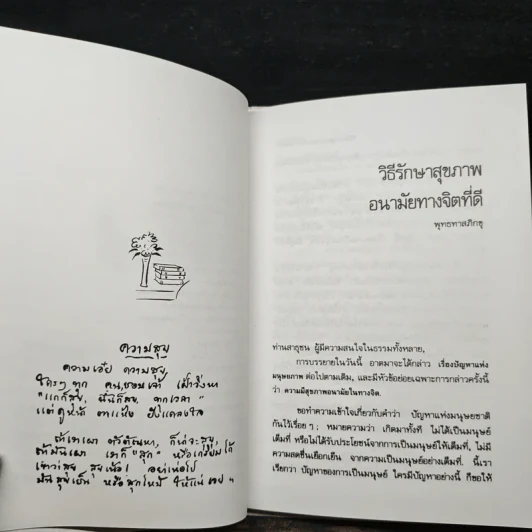 ความสุข
ความเอ๋ย ความสุข
ใครๆ ทุก คน ชอบเจ้า เฝ้าวิ่งหา
"แกก็สุข, ฉันก็สุข, ทุกเวลา"
แต่ดูหน้า ตาแห้ง ยังแคลงใจ
ถ้าเราเผา ตัวตัณหา, ก็น่าจะสุข,
ถ้ามันเผา เราก็ "สุก" หรือเกรียมได้
เขาว่าสุข สุขเน้อ! อย่าเห่อไป
มันสุขเย็น หรือสุกไหม้ ให้แน่เอย ฯ
วิธีรักษาสุขภาพ
อนามัยทางจิตที่ดี
พุทธทาสภิกขุ
ท่านสาธุชน ผู้มีความสนใจในธรรมทั้งหลาย,
การบรรยายในวันนี้ อาตมาจะได้กล่าว เรื่องปัญหาแห่ง
มนุษยภาพ ต่อไปตามเดิม, และมีหัวข้อย่อยเฉพาะการกล่าวครั้งนี้
ว่า ความมีสุขภาพอนามัยในทางจิต.
ขอทำความเข้าใจเกี่ยวกับคำว่า ปัญหาแห่งมนุษยชาติ
กันไว้เรื่อย ๆ : หมายความว่า เกิดมาทั้งที ไม่ได้เป็นมนุษย์
เต็มที่ หรือไม่ได้รับประโยชน์จากการเป็นมนุษย์ให้เต็มที่, ไม่มี
ความสดชื่นเยือกเย็น จากความเป็นมนุษย์อย่างเต็มที่. นี้เรา
เรียกว่า ปัญหาของการเป็นมนุษย์ ใครมีปัญหาอย่างนี้ ก็ขอให้